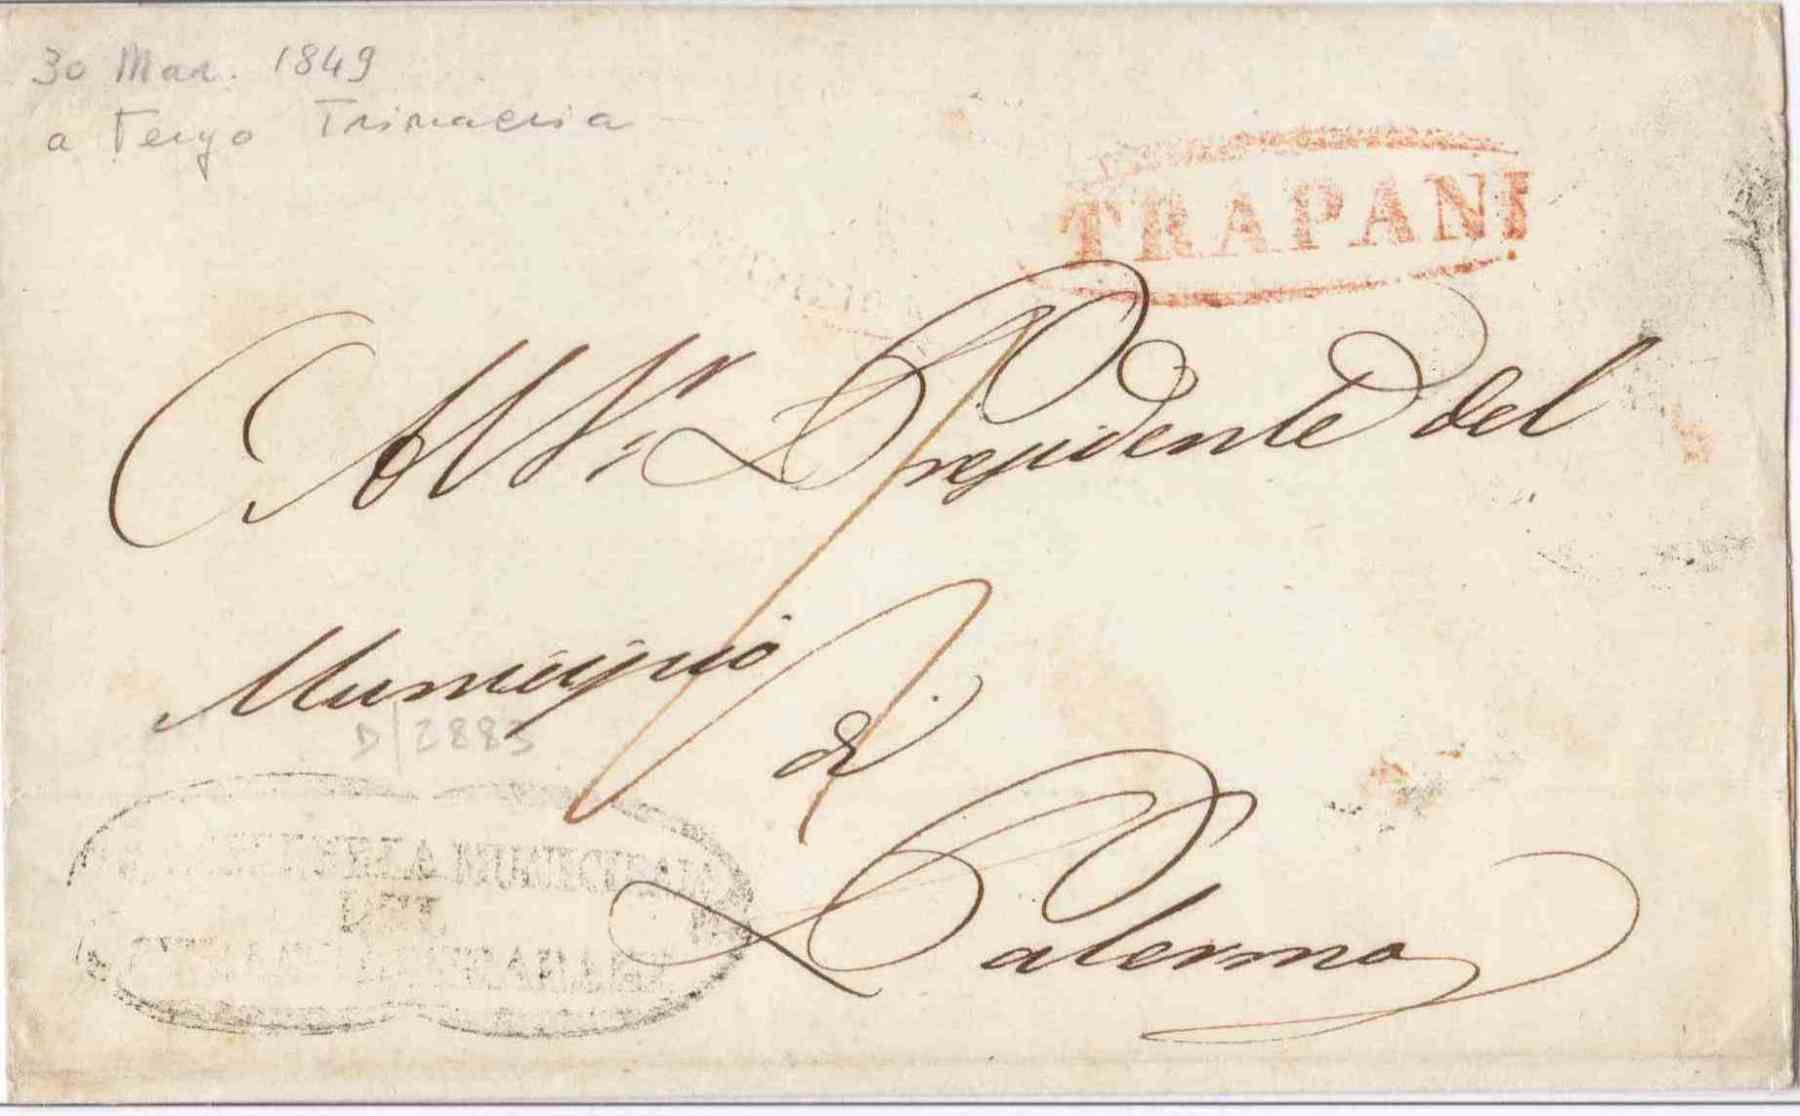 30 Mar. 1849
a Tergo Trinacria
TRAPANI
Al Sr. Presidente del
Municipio
D/2883
di
Palermo
MUNICIPALE
DEL